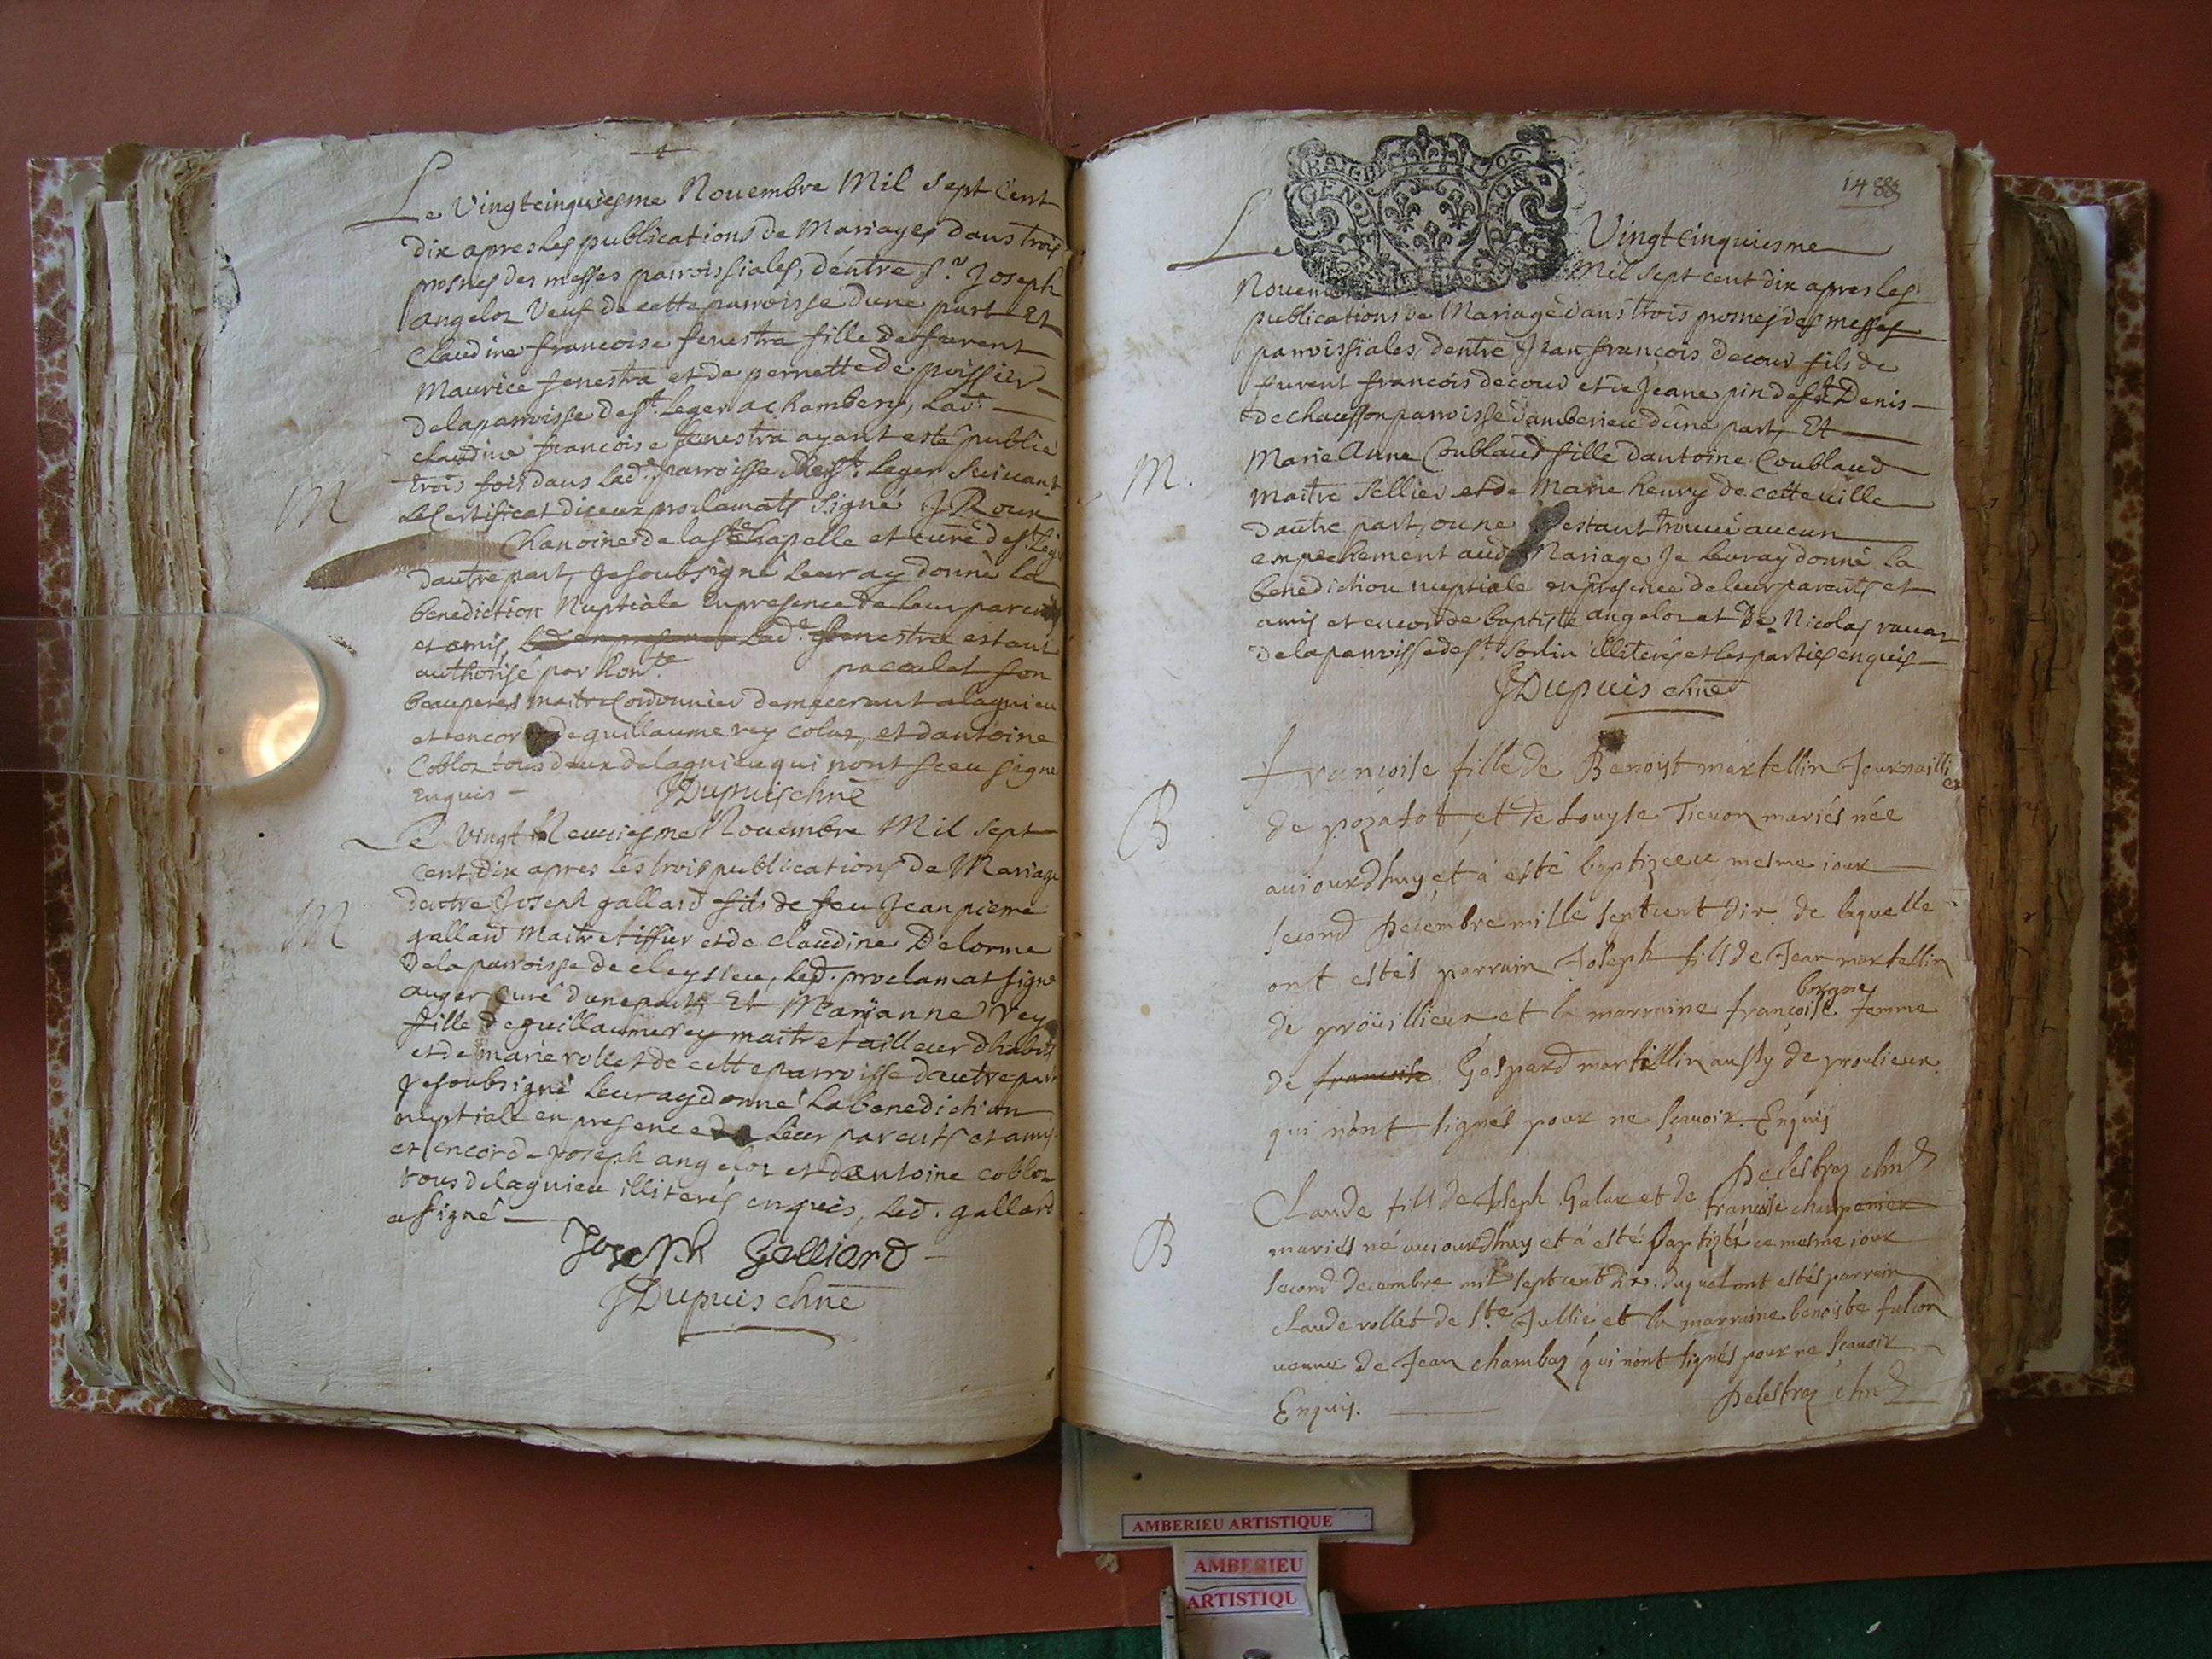 Le Vingtcinquiesme Nouembre Mil sept Cent
dix apres les publications de Mariages dans trois
prosnes des messes parroissiales, dentre Sr. Joseph
angeloz Veuf de cette parroisse dune part Et
Claudine francoise fenestra fille de furent
Maurice fenestra et de pernette de poissieu
de la parroisse de st. Leger a chambery, Lad.
claudine francoise fenestra ayant esté publié
trois fois dans lad.e parroisse de st. Leger Suiuant
Le Certificat diceux proclamats Signé J Roux
M
Chanoine de la Ste Chapelle et curé de st Leger
dautre part, Je soubsigné leur ay donné la
benediction Nuptiale En presence de leur parents
et amis, Lad.e fenestra estant
authorisé par hon.te pacalet son
beaupere maitre Cordonnier demeurant a lagnieu
et encor de guillaume rey coluz, et dantoine
Cobloz tous deux de lagnieu qui nont sceu signe
Enquis
JDupuis chne
Le Vingt Neuuiesme Nouembre Mil sept
Cent dix apres les trois publications de Mariage
dentre Joseph gallard fils de feu Jean pierre
M
gallard Maitre tissier et de claudine Delorme
De la parroisse de cleyzieu, led. proclamat signe
auger Curé dune part, Et Marianne Rey
fille de guillaume rey maitre tailleur dhabits
et de marie rollet de cette parroisse dautre part
Je soubsigné Leur ay donné La benediction
nuptiale en presence de Leur parents et amys
et encor de Joseph angeloz et dantoine cobloz
tous de lagnieu illiterés enquis, Led. gallard
a signé
Joseph Galliard
JDupuis chne
1488
GEN
Le Vingtcinquiesme
Nouem Mil sept cent dix apres les
publications de Mariage dans trois prosnes des messes
parroissiales, dentre Jean françois decour fils de
furent francois decour et de Jeane pin de St Denis
de chausson parroisse damberieu dune part, Et
Marie Anne Coublaud fille dantoine Coublaud
M.
maitre Sellier et de Marie henry de cette uille
dautre part, ou ne sestant trouué aucun
empechement aud. Mariage Je leur ay donné la
benediction nuptiale en presence de leur parents et
amis et encor de baptiste angeloz et de Nicolas rauaz
de la parroisse de st. Sorlin illiterés et les parties enquis
JDupuis chne
francoise fille de Benoist martellin Journaillier
B
de pozafot et de Louyse Ticuon mariés née
auiourdhuy et à esté baptizée ce mesme iour
second decembre mille septcent dix de laquelle
ont estés parrain Joseph fils de Jean martellin
borgne
de proüillieux et la marraine françoise femme
de francoise Gaspard martellin aussy de proulieux
qui nont signés pour ne sçauoir. Enquis
Pelestraz chne
Claude fils de Joseph Galax et de francoise charpenier
mariés né auiourdhuy et à esté baptizé ce mesme iour
B
second decembre mil septcent dix. duquel ont estés parrain
claude rollet de Ste Jullie et la marraine benoiste fulcon
ueuue de Jean chambaz qui nont signés pour ne sçauoir
Enquis.
Pelestraz chne
AMBERIEU ARTISTIQUE
AMBERIEU
ARTISTIQU